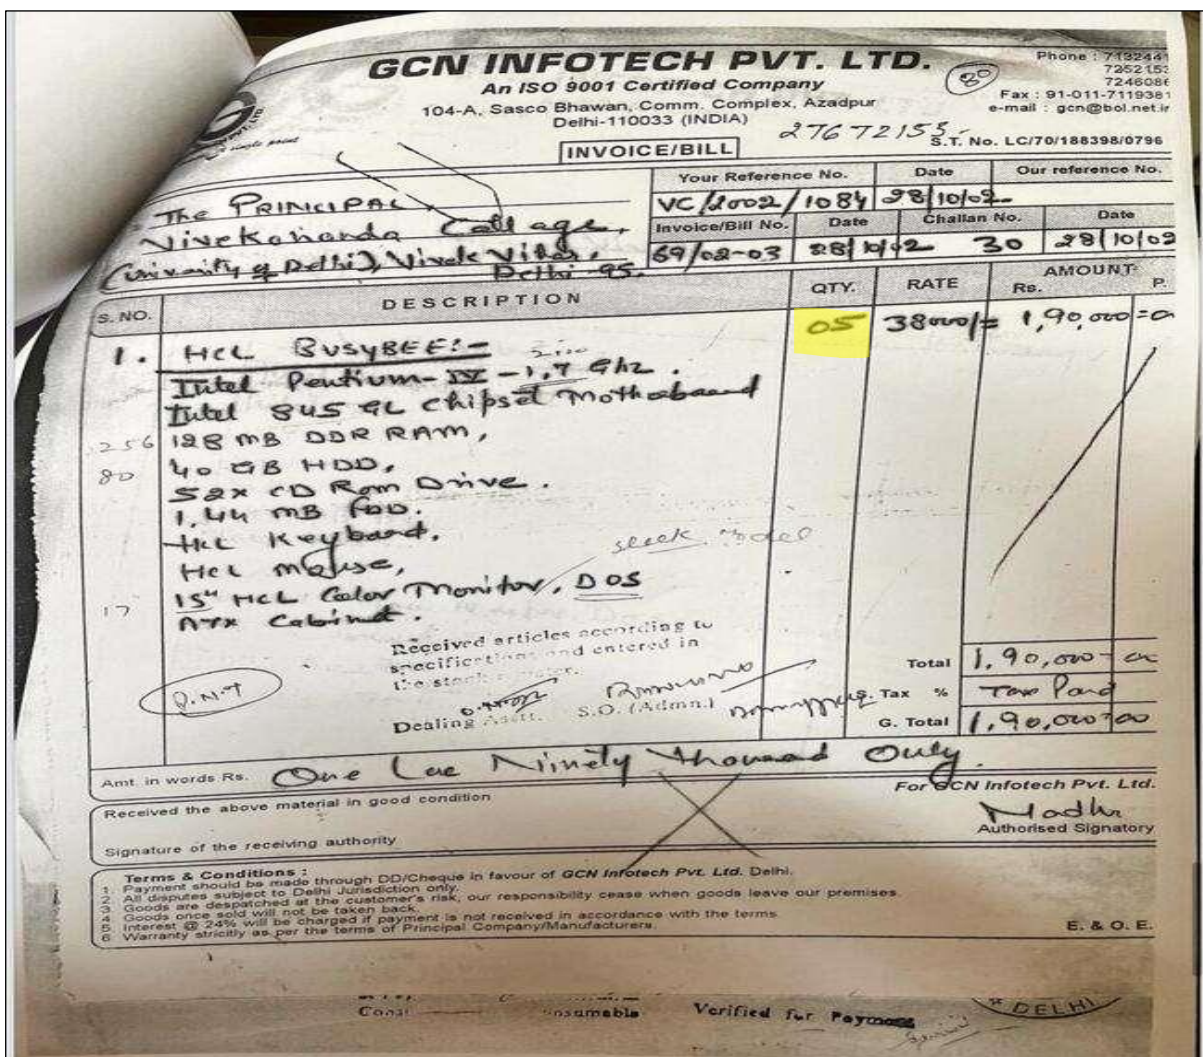 GCN INFOTECH PVT. LTD.
An ISO 9001 Certified Company
104-A, Sasco Bhawan, Comm. Complex, Azadpur
Delhi-110033 (INDIA)
80
Phone : 7132441
7252153
7246086
Fax : 91-011-7119381
e-mail : gcn@bol.net.in
27672153
S.T. No. LC/70/188398/0796
single point
INVOICE/BILL
The PRINCIPAL,
Vivekananda College,
(University of Delhi), Vivek Vihar,
Delhi-95.
Your Reference No. Date Our reference No.
VC/2002/1084 28/10/02
Invoice/Bill No. Date Challan No. Date
69/02-03 28/10/02 30 28/10/02
S. NO. DESCRIPTION QTY. RATE AMOUNT
Rs. P.
1. HCL BUSYBEE:- 05 38000/= 1,90,000=00
Intel Pentium-IV-1.7 Ghz.
Intel 845 GL Chipset Motherboard
256 128 MB DDR RAM,
80 40 GB HDD,
52x CD Rom Drive.
1.44 MB FDD.
HCL Keyboard,
HCL mouse,
17 15" HCL Color Monitor, DOS
ATX Cabinet.
Received articles according to
specifications and entered in
the stock
Dealing Asstt. S.O. (Admn.)
Q.N.T
Total 1,90,000=00
Tax % Tax Paid
G. Total 1,90,000=00
Amt. in words Rs. One Lac Ninety thousand Only.
Received the above material in good condition
For GCN Infotech Pvt. Ltd.
Madhu
Authorised Signatory
Signature of the receiving authority
Terms & Conditions :
1. Payment should be made through DD/Cheque in favour of GCN Infotech Pvt. Ltd. Delhi.
2. All disputes subject to Delhi Jurisdiction only.
3. Goods are despatched at the customer's risk, our responsibility cease when goods leave our premises.
4. Goods once sold will not be taken back.
5. Interest @ 24% will be charged if payment is not received in accordance with the terms.
6. Warranty strictly as per the terms of Principal Company/Manufacturers.
E. & O. E.
Verified for Payment
DELHI